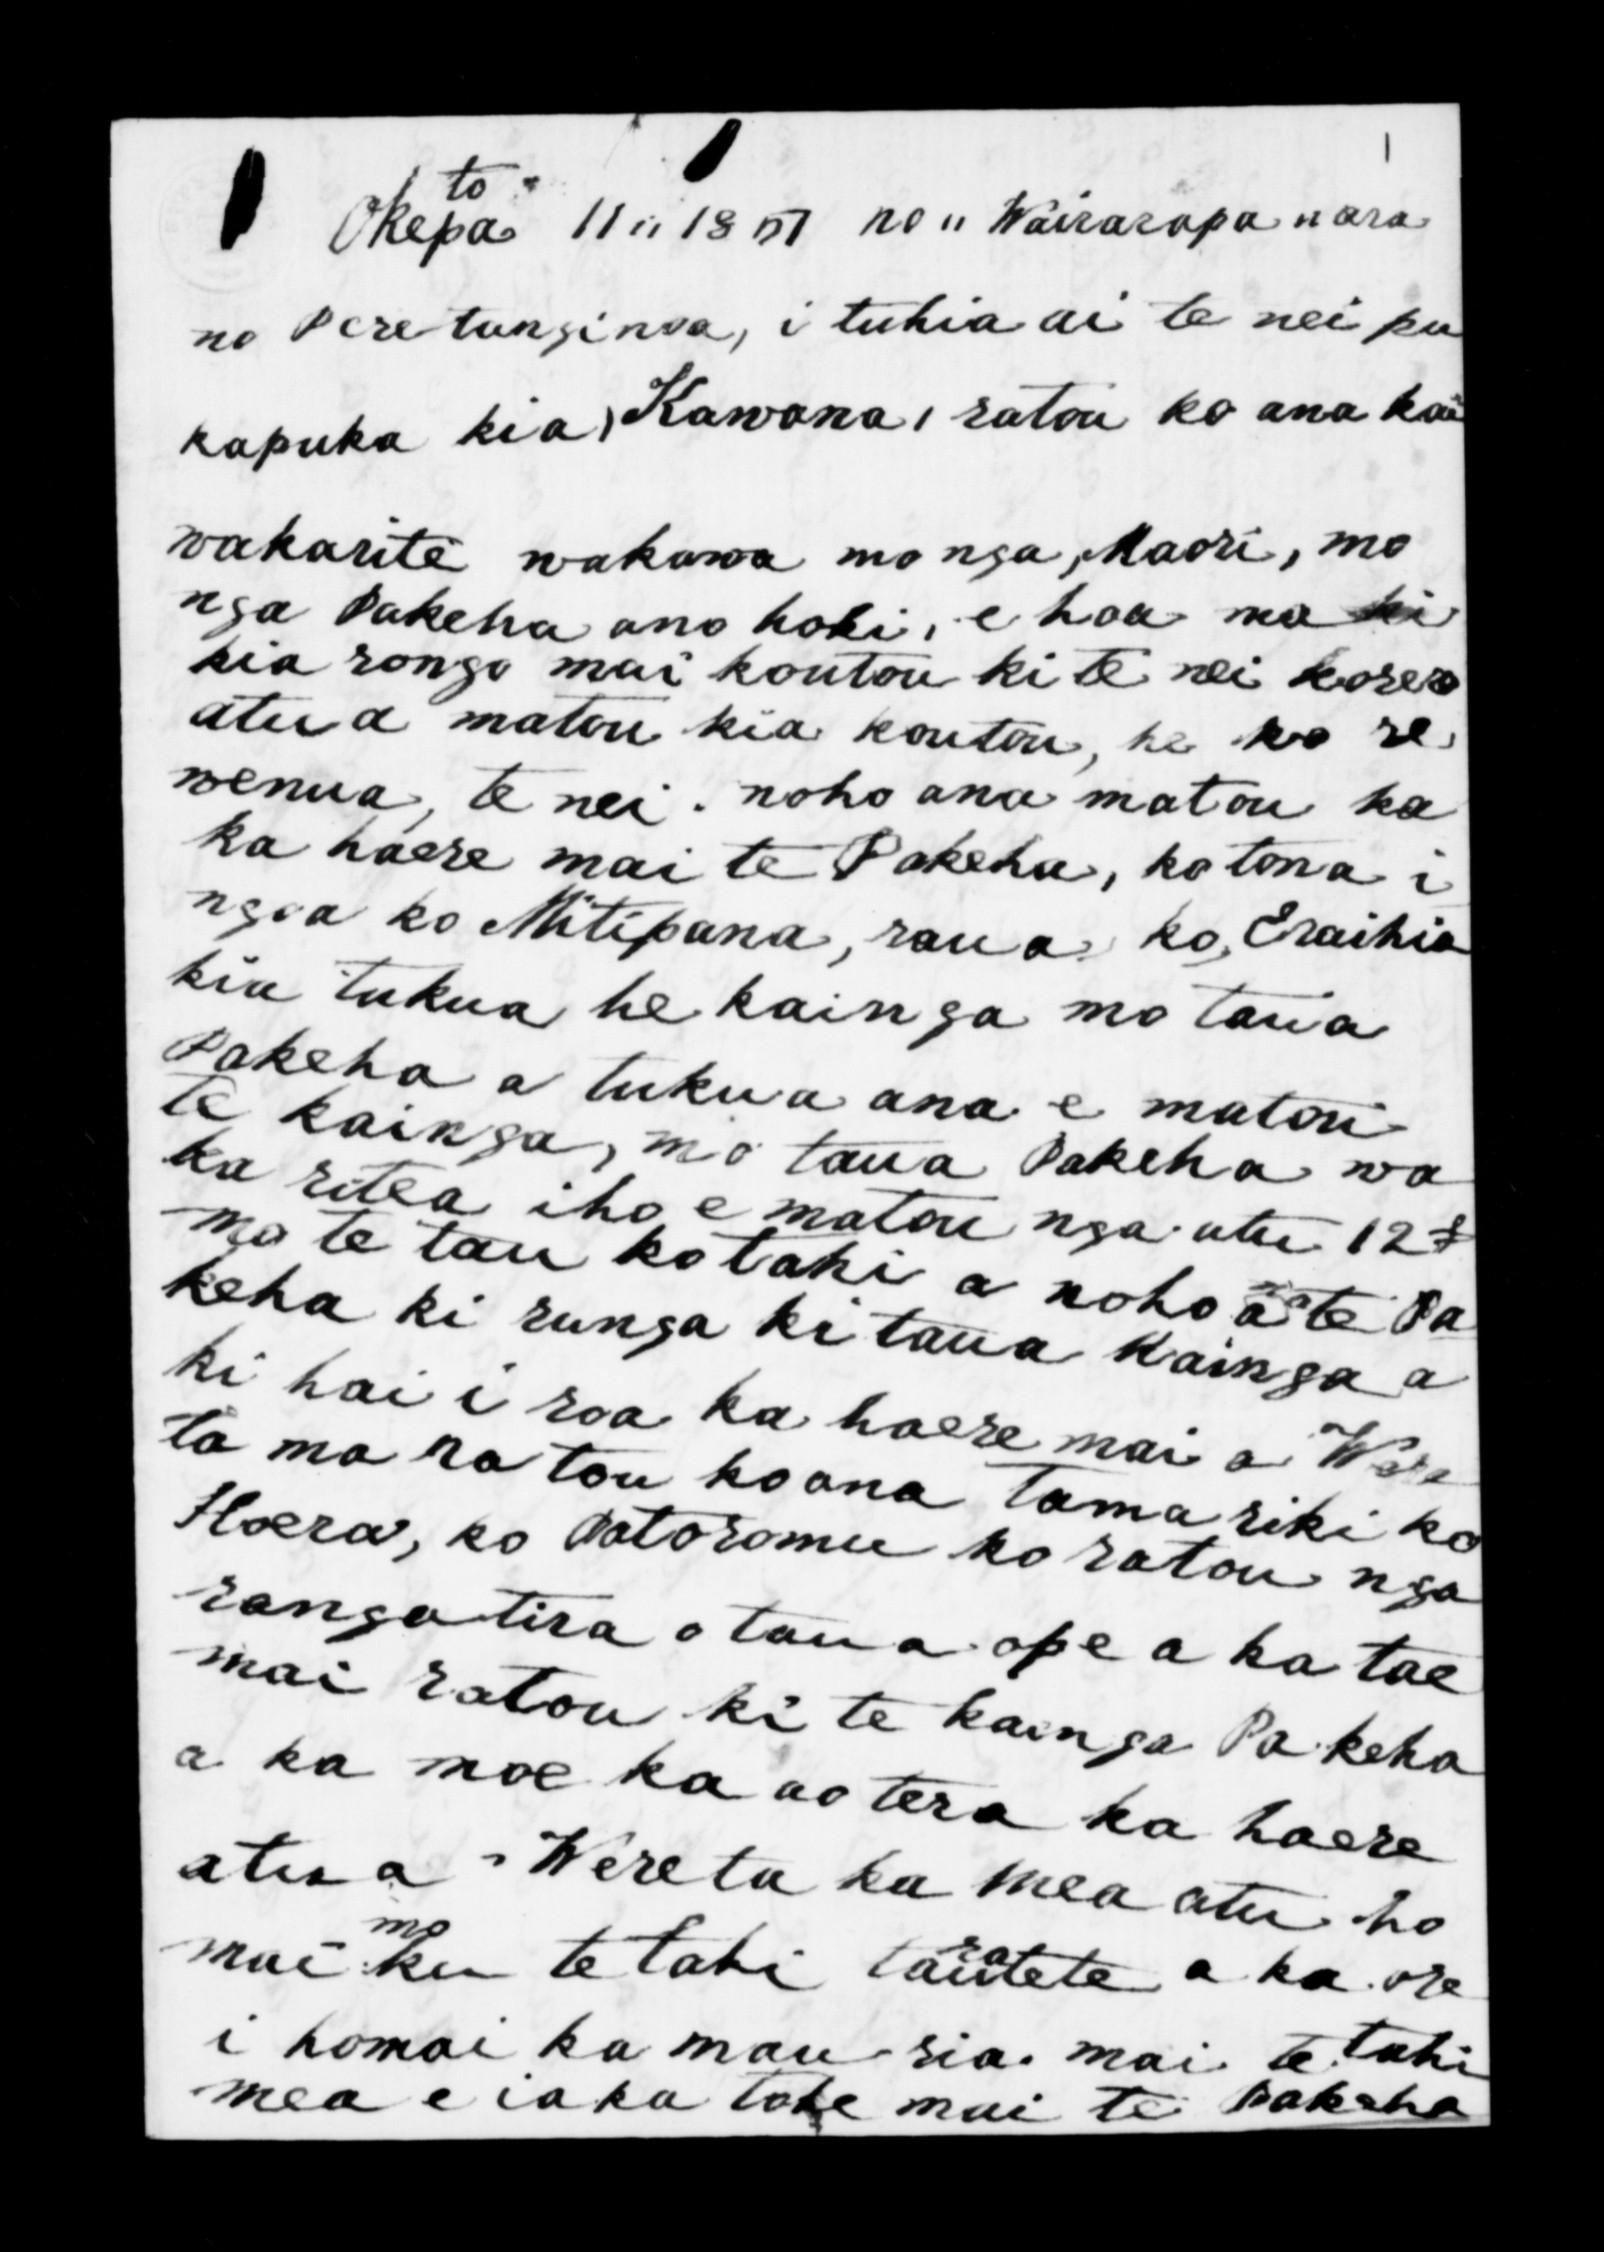 1
Oketopa 11 " 1851 no " Wairarapa " ara
no Peretunginoa, i tuhia ai te nei pu
kapuka kia, Kawana, ratou ko ana kai
wakarite wakawa mo nga, Maori, mo
nga Pakeha ano hoki, e hoa ma ki
kia rongo mai koutou ki te nei korero
atu a matou kia koutou, he ko re
wenua, te nei. noho ana matou ka
ka haere mai te Pakeha, ko tona i
ngoa ko Mitipana, raua ko, Eraihia
kia tukua he kainga mo taua
Pakeha a tukua ana e matou
te kainga, mo taua Pakeha wa
ka ritea iho e matou nga utu 12 £
mo te tau kotahi a noho ana te Pa
keha ki runga ki taua kainga a
ki hai i roa ka haere mai a Were
ta ma ratou ko ana tamariki ko
Hoera, ko Patoromu ko ratou nga
rangatira o taua ope a ka tae
mai ratou ki te kainga Pakeha
a ka moe ka ao te ra ka haere
atu a Wereta ka mea atu ho
mai moku te tahi tarautete a ka ore
i homai ka mau ria mai te tahi
mea e ia ka tohe mai te Pakeha